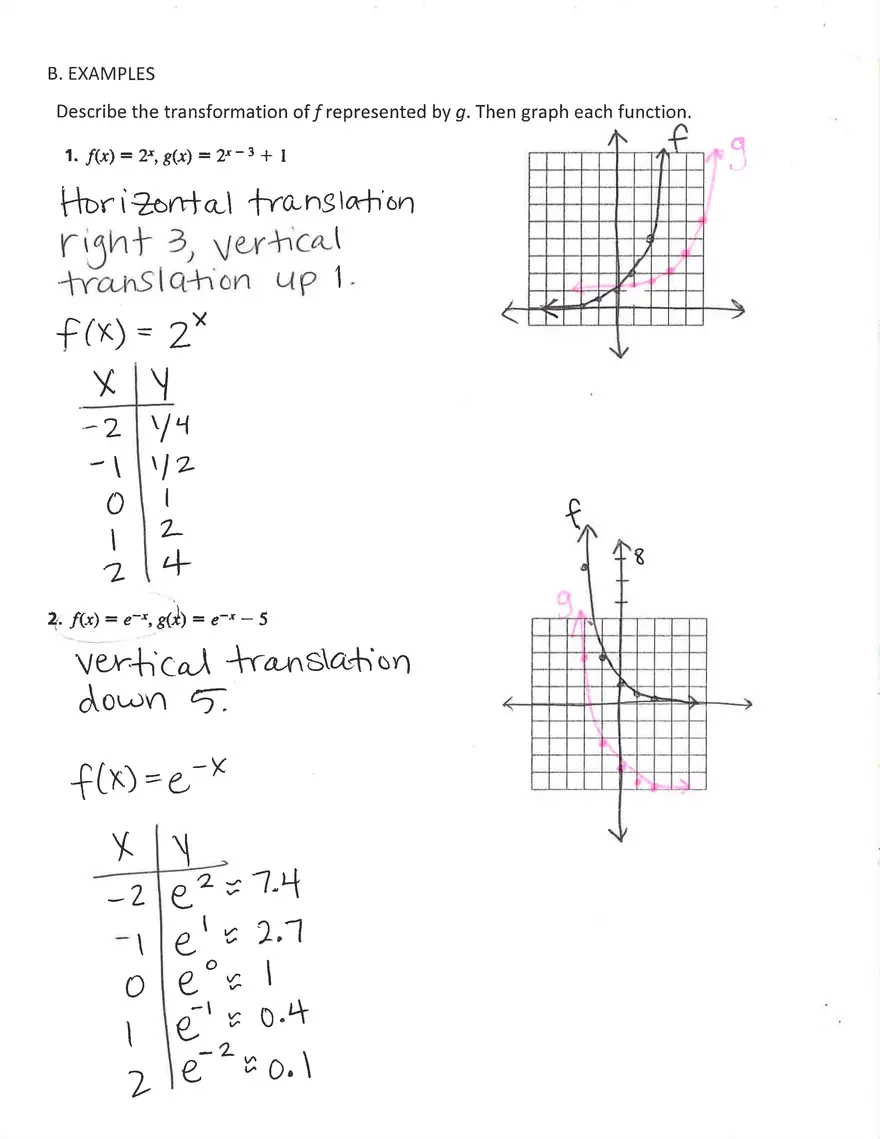 B. EXAMPLES
Describe the transformation of f represented by g. Then graph each function.
1. f(x) = 2ˣ, g(x) = 2ˣ⁻³ + 1
Horizontal translation
right 3, vertical
translation up 1.
f(x) = 2ˣ
X Y
-2 1/4
-1 1/2
0 1
1 2
2 4
f
g
2. f(x) = e⁻ˣ, g(x) = e⁻ˣ – 5
vertical translation
down 5.
f(x) = e⁻ˣ
X Y
-2 e² ≈ 7.4
-1 e¹ ≈ 2.7
0 e⁰ ≈ 1
1 e⁻¹ ≈ 0.4
2 e⁻² ≈ 0.1
f
8
g